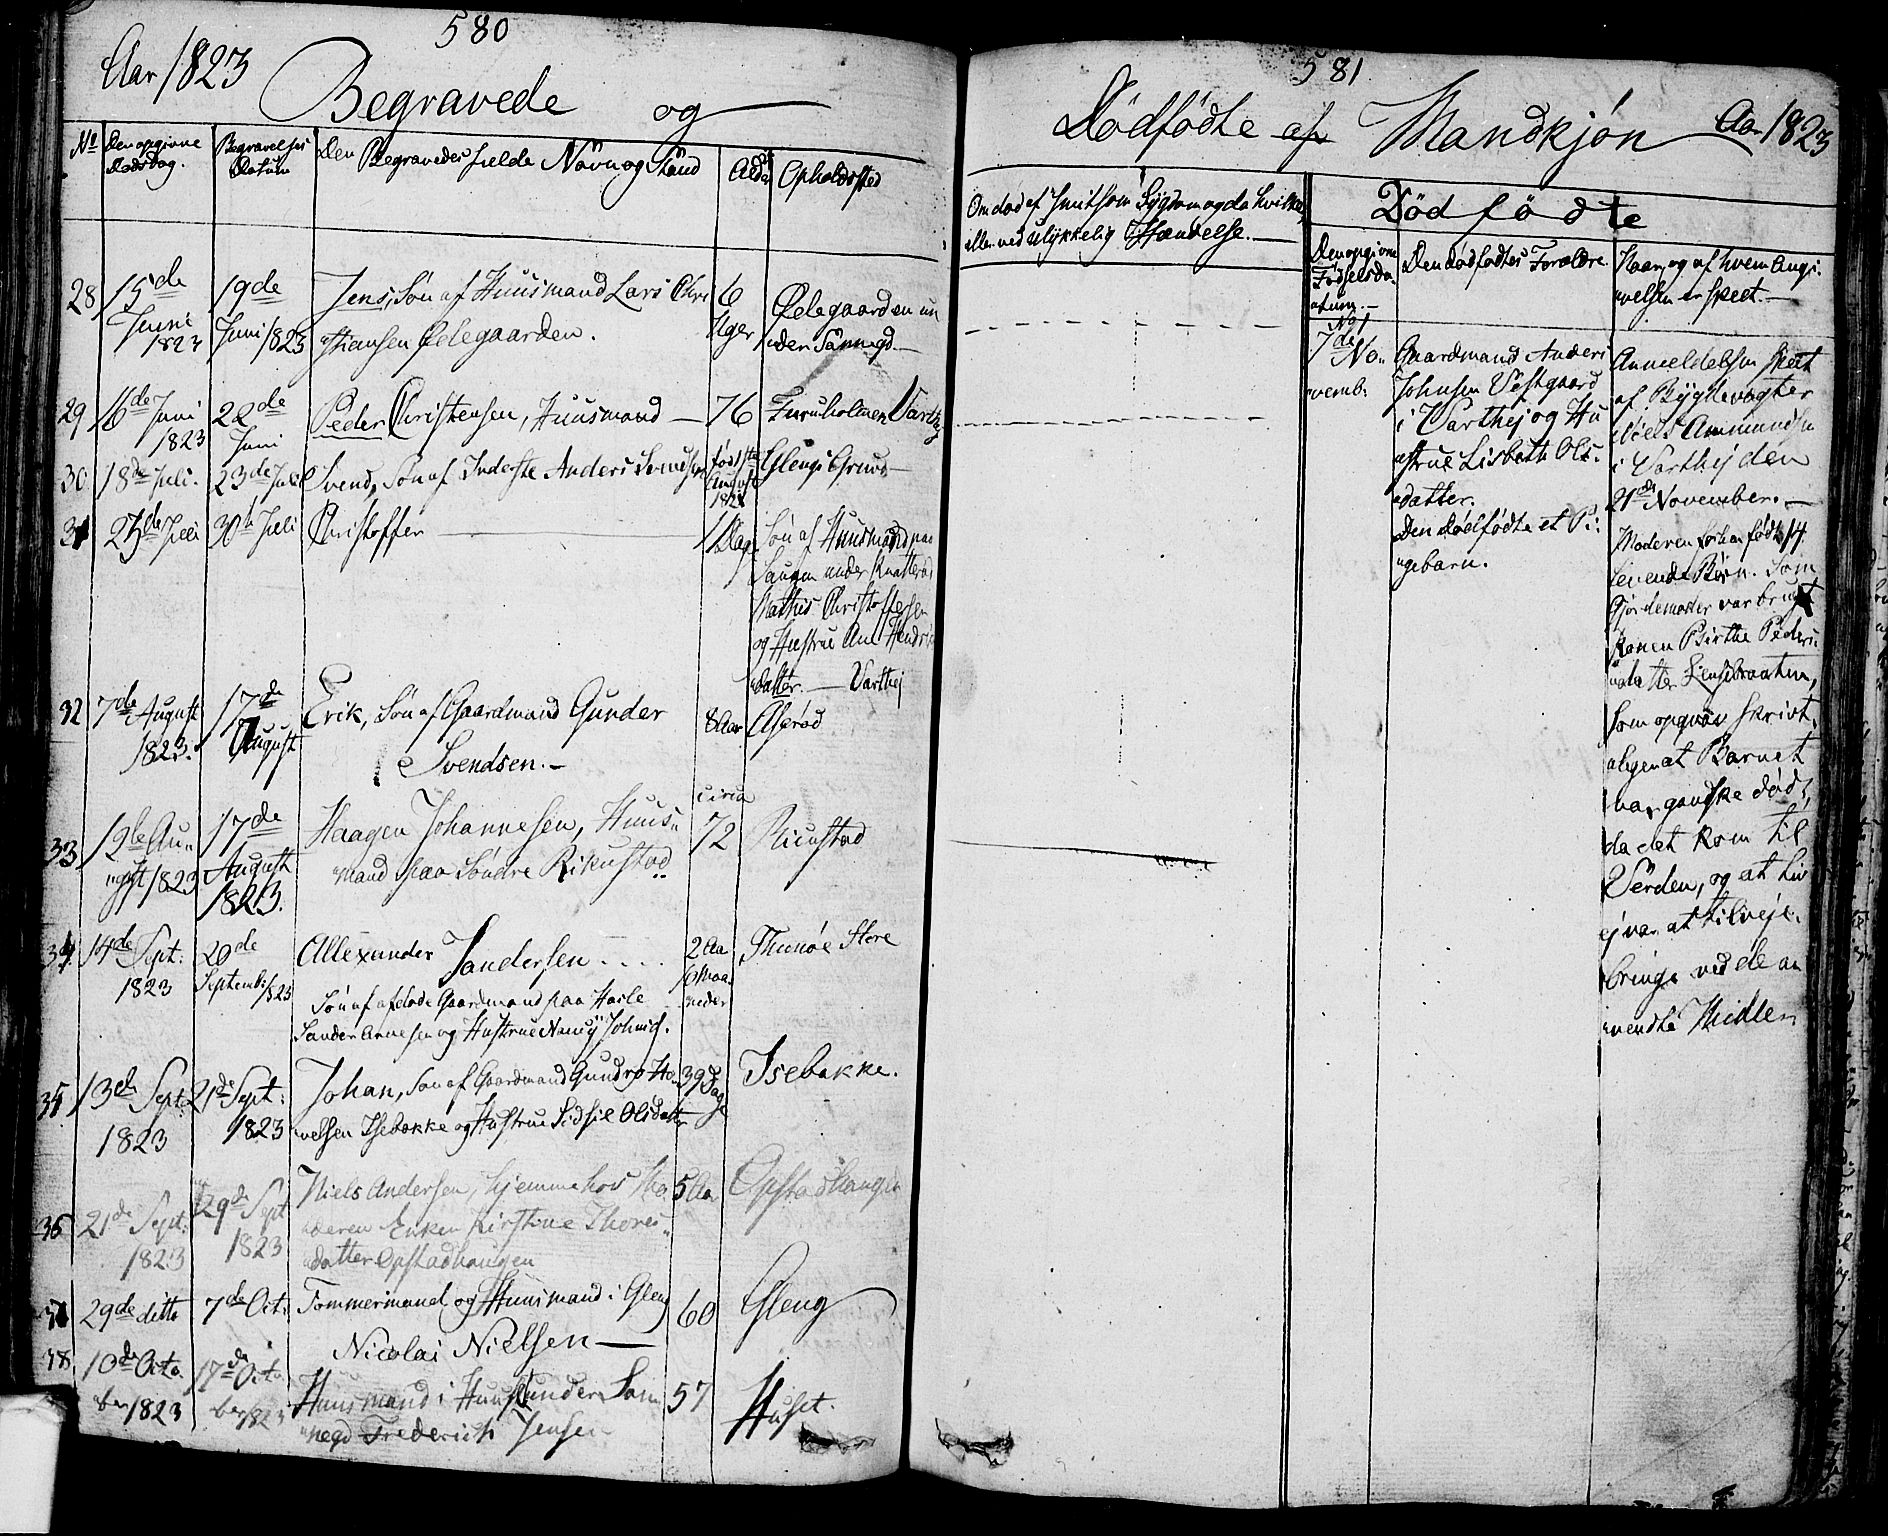 580
Aar 1823
Begravede og
No
Den opgivne
Dødsdag.
Begravelses
Datum
Den Begravedes fulde Navn og Stand
Alder
Opholdssted
28
15de
Juni
1823
19de
Juni 1823
Jens, Søn af Huusmand Lars Chri
stiansen Ødegaarden.
6
Uger
Ødegaarden un
der
29
16de Juni
1823
22de
Juni
Peder Christensen, Huusmand
76
Furuholmen Varthej
30
18de Juli.
23de Juli
Svend, Søn af Inderste Anders Svendsen
født
August
Glengs Grund
31
23de Juli
30te Juli
Christoffer
1 Dag
Søn af Huusmand paa
Saugen under
Mathis Christoffersen
og Hustrue Ane Hendrics
datter. Varthej
32
7de August
1823.
17de
August
Erik, Søn af Gaardmand Gunder
Svendsen.
8 Aar
33
12te Au
gust 1823
17de
August
1823.
Haagen Johannesen, Huus
mand paa Søndre
circa
72
34
14de Sept:
1823
20de
Septemb: 1823
Allexander Sandersen
Søn af afdøde Gaardmand paa Hasle
Sander Arnesen og Hustrue Nancy
2 Aar
10 Maa
neder
Thunøe Store
35
13de Sept.
1823
21de Sept:
1823
Johan, Søn af Gaardmand Gundro Ha
velsen Isebakke og Hustrue Sidsil Olsdatter
39 Dage
Isebakke.
36
21de Sept:
1823
29de Sept
1823
Niels Andersen, hjemme hos Mo
deren Enken Kirstine Thores
datter Opstadhaugen
5 Aar
Opstadhaugen
29de ditto
7de Oct:
Tommermand og Huusmand i Gleng
Nicolai Nielsen
60
Gleng
38
10de Octo
ber 1823
17de Octo
ber 1823
Huusmand i Huset under San
negd Frederich Jensen
57
Huset.
581
Dødfødte af Mandkjøn Aar 1823
Om død af smitsom Sygdom og da hvilken,
eller ved ulykkelig Hændelse.
Dødfødte
Den opgivne
Fødselsda-
tum.
Den dødfødtes Forældre
Naar, og af hvem Angi-
velsen er skeet.
No 1
7de No
vemb:
Gaardmand Anders
Johnsen Vestgaard
i Varthej og Hu
strue Lisbeth Ols:
datter.
Den Dødfødte et Pi:
gebarn.
Anmeldelsen skeet
af Bygdevægter
Niels Ammundsen
i Varthej den
21de November.
Moderen forhen født 14
levende Børn. Som
Gjordemoder var brugt
Konen Birthe Peders
datter
som opgav skrivt
ligen at Barnet
var ganske død,
da det kom til
Verden, og at Liv
ej var at tilveje
bringe ved de an
vendte Midler.